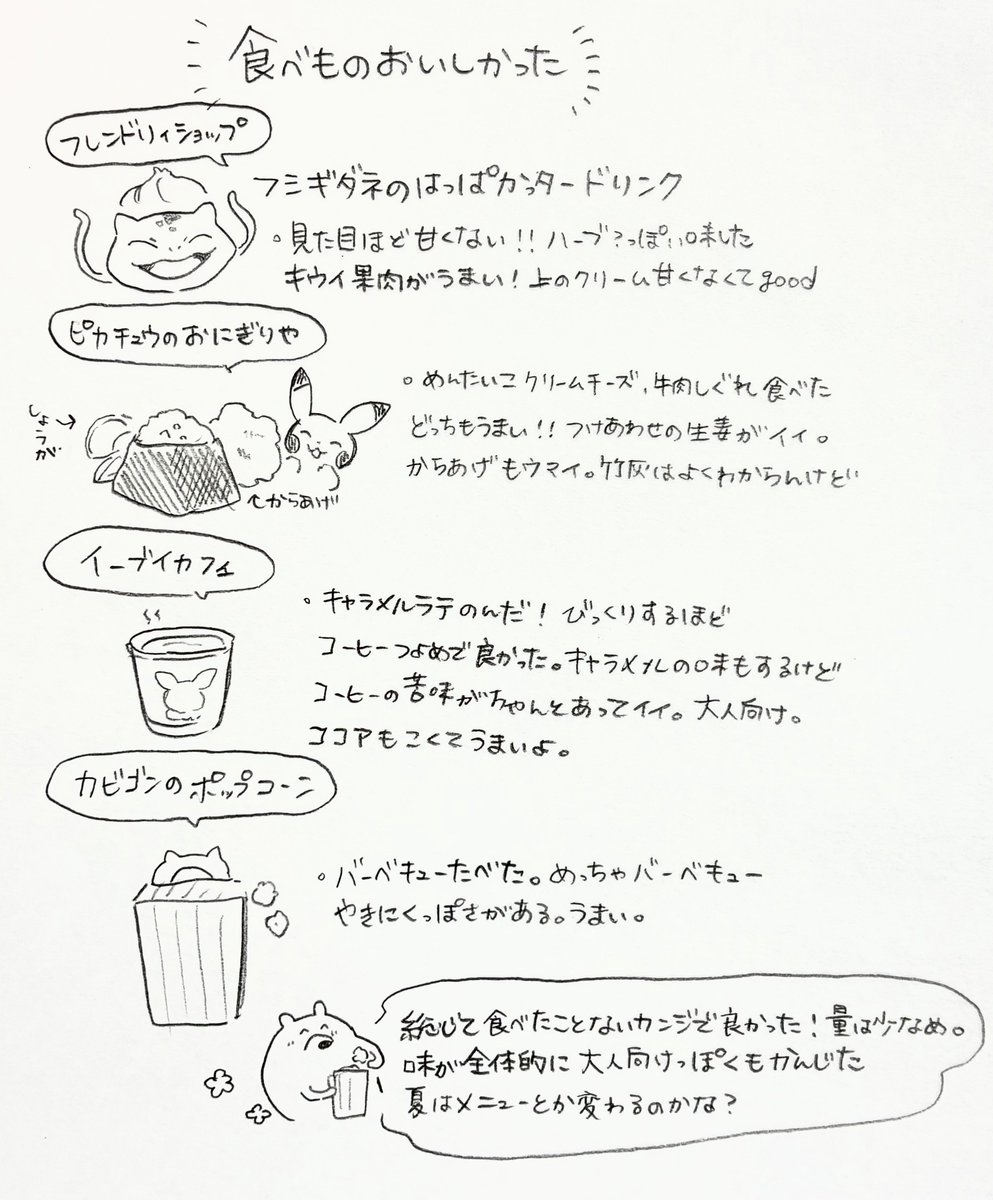 食べものおいしかった
フレンドリィショップ
フシギダネのはっぱカッタードリンク
。見た目ほど甘くない!! ハーブ?っぽい味した
キウイ果肉がうまい!上のクリーム甘くなくてgood
ピカチュウのおにぎりや
しょうが
←からあげ
。めんたいこクリームチーズ、牛肉しぐれ食べた
どっちもうまい!! つけあわせの生姜がイイ。
からあげもウマイ。竹灰はよくわからんけど
イーブイカフェ
。キャラメルラテのんだ! びっくりするほど
コーヒーつよめで良かった。キャラメルの味もするけど
コーヒーの苦味がちゃんとあってイイ。大人向け。
ココアもこくてうまいよ。
カビゴンのポップコーン
。バーベキューたべた。めっちゃバーベキュー
やきにくっぽさがある。うまい。
総じて食べたことないカンジで良かった!量は少なめ。
味が全体的に大人向けっぽくもかんじた
夏はメニューとか変わるのかな?